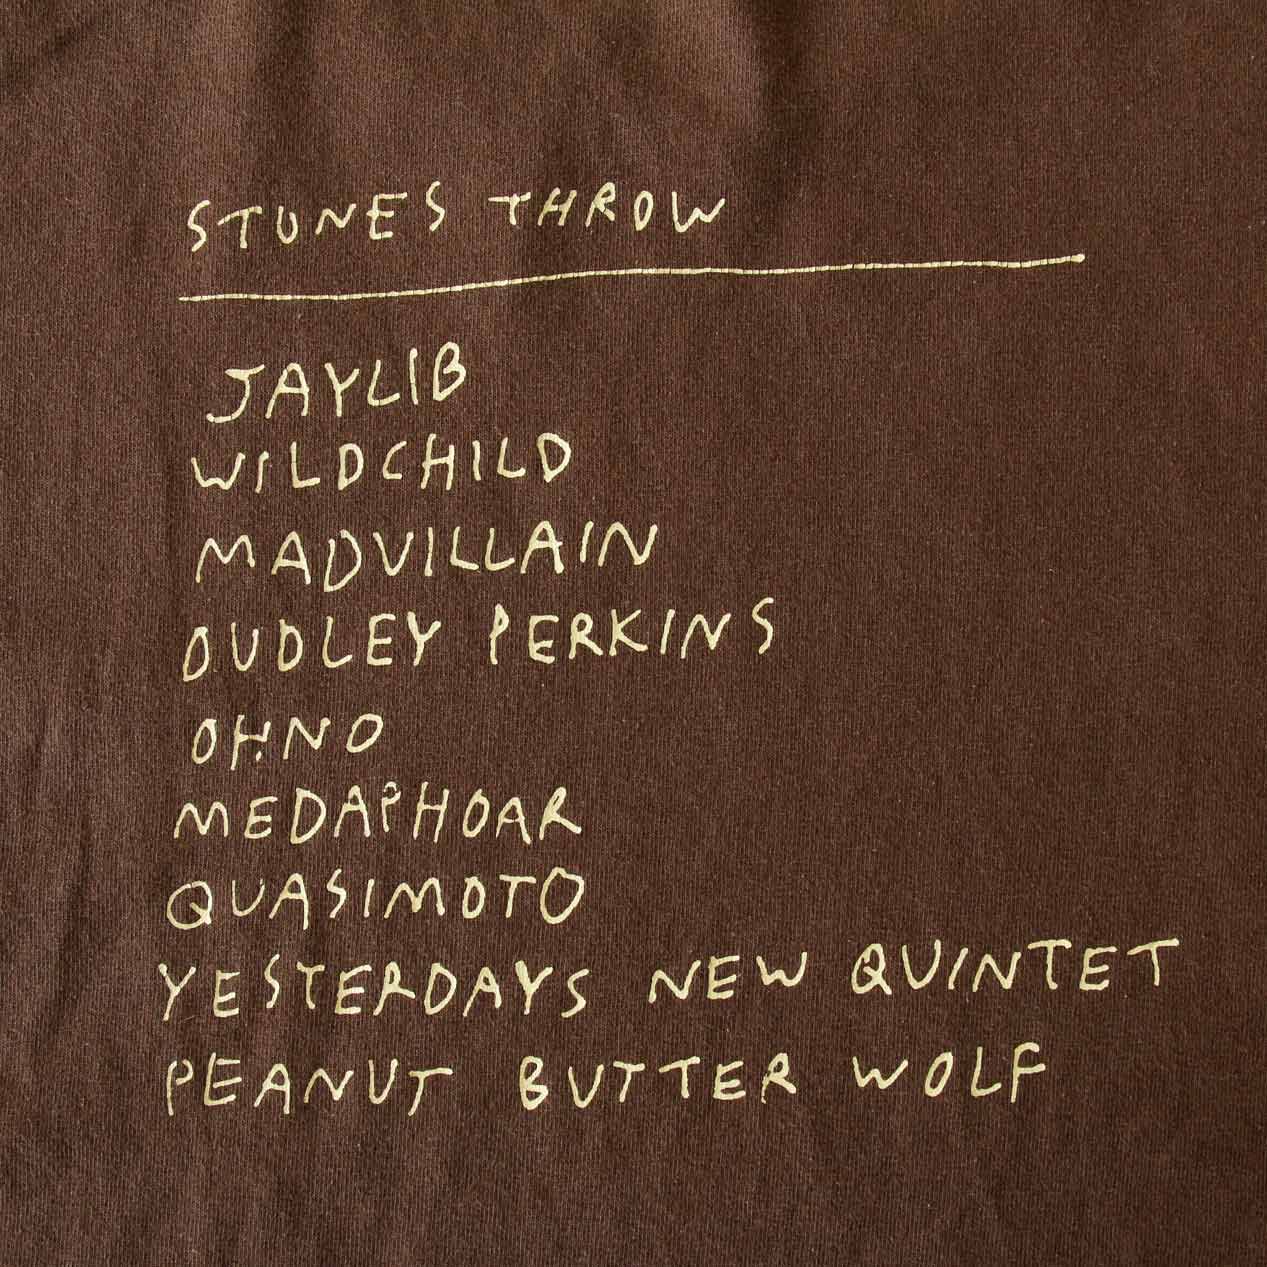 STONES THROW
JAYLIB
WILDCHILD
MADVILLAIN
DUDLEY PERKINS
OH NO
MEDAPHOAR
QUASIMOTO
YESTERDAYS NEW QUINTET
PEANUT BUTTER WOLF